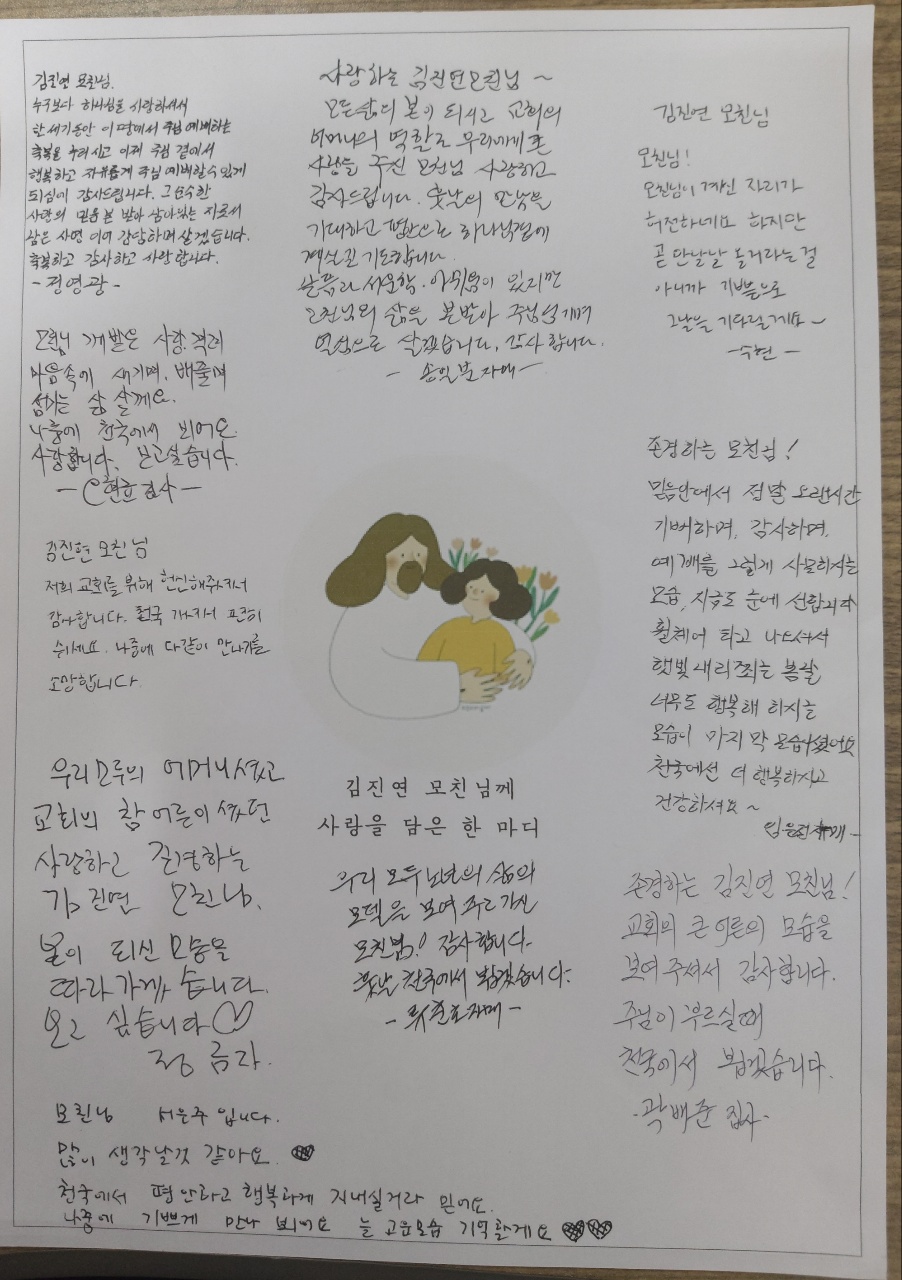 김진연 모친님.
누구보다 하나님을 사랑하셔서
한 세기동안 이 땅에서 주님 예배하는
축복을 누리시고 이제 주님 곁에서
행복하고 자유롭게 주님 예배할 수 있게
되심이 감사드립니다. 그 순수한
사랑의 믿음 본 받아 남아있는 자로서
남은 사명 이어 감당하며 살겠습니다.
축복하고 감사하고 사랑합니다.
- 정영광 -
모친님 께 받은 사랑. 격려
마음속에 새기며, 베풀며
섬기는 삶 살께요.
나중에 천국에서 뵈어요.
사랑합니다. 보고싶습니다.
김진연 모친님
저희 교회를 위해 헌신해주셔서
감사합니다. 천국 가셔서 편히
쉬세요. 나중에 다같이 만나기를
소망합니다.
우리 모두의 어머니셨고
교회의 참 어른이셨던
사랑하고 존경하는
김진연 모친님.
본이 되신 모습을
따라가겠습니다.
보고 싶습니다♡
모친님 서은주 입니다.
많이 생각날것 같아요. ♥
천국에서 평안하고 행복하게 지내실거라 믿어요.
나중에 기쁘게 만나 뵈어요 늘 고운모습 기억할게요 ♥♥
사랑하는 김진연모친님 ~
모든 삶의 본이 되시고 교회의
어머니의 역할로 우리에게 큰
사랑을 주신 모친님 사랑하고
감사드립니다. 훗날의 만남을
기대하고 평안으로 하나님 곁에
계시길 기도합니다.
슬픔과 서운함. 아쉬움이 있지만
모친님의 삶을 본받아 주님 섬기며
열심으로 살겠습니다. 감사합니다.
김진연 모친님께
사랑을 담은 한 마디
우리 모두 노년의 삶의
모델을 보여 주고 가신
모친님! 감사합니다.
훗날 천국에서 뵙겠습니다.
김진연 모친님
모친님!
모친님이 계신 자리가
허전하네요 하지만
곧 만날날 놀거라는 걸
아니까 기쁨으로
그날을 기다릴게요~
- 수현 -
존경하는 모친님!
믿음안에서 정말 오랜시간
기뻐하며, 감사하며,
예배를 그렇게 사모하시는
모습, 지금도 눈에 선합니다
휠체어 타고 나오셔서
햇빛 내리쬐는 봄날
너무도 행복해 하시는
모습이 마지막 모습이셨어요
천국에선 더 행복하시고
건강하셔요~
존경하는 김진연 모친님!
교회의 큰 어른의 모습을
보여 주셔서 감사합니다.
주님이 부르실때
천국에서 뵙겠습니다.
- 곽백준 집사 -